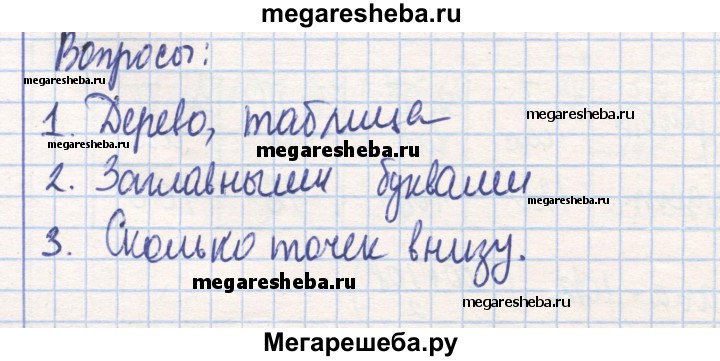 megaresheba.ru
Вопросы:
megaresheba.ru
1. Дерево, таблица
megaresheba.ru
megaresheba.ru
megaresheba.ru
2. Заглавными буквами
megaresheba.ru
3. Сколько точек внизу.
megaresheba.ru
megaresheba.ru
Мегарешеба.ру